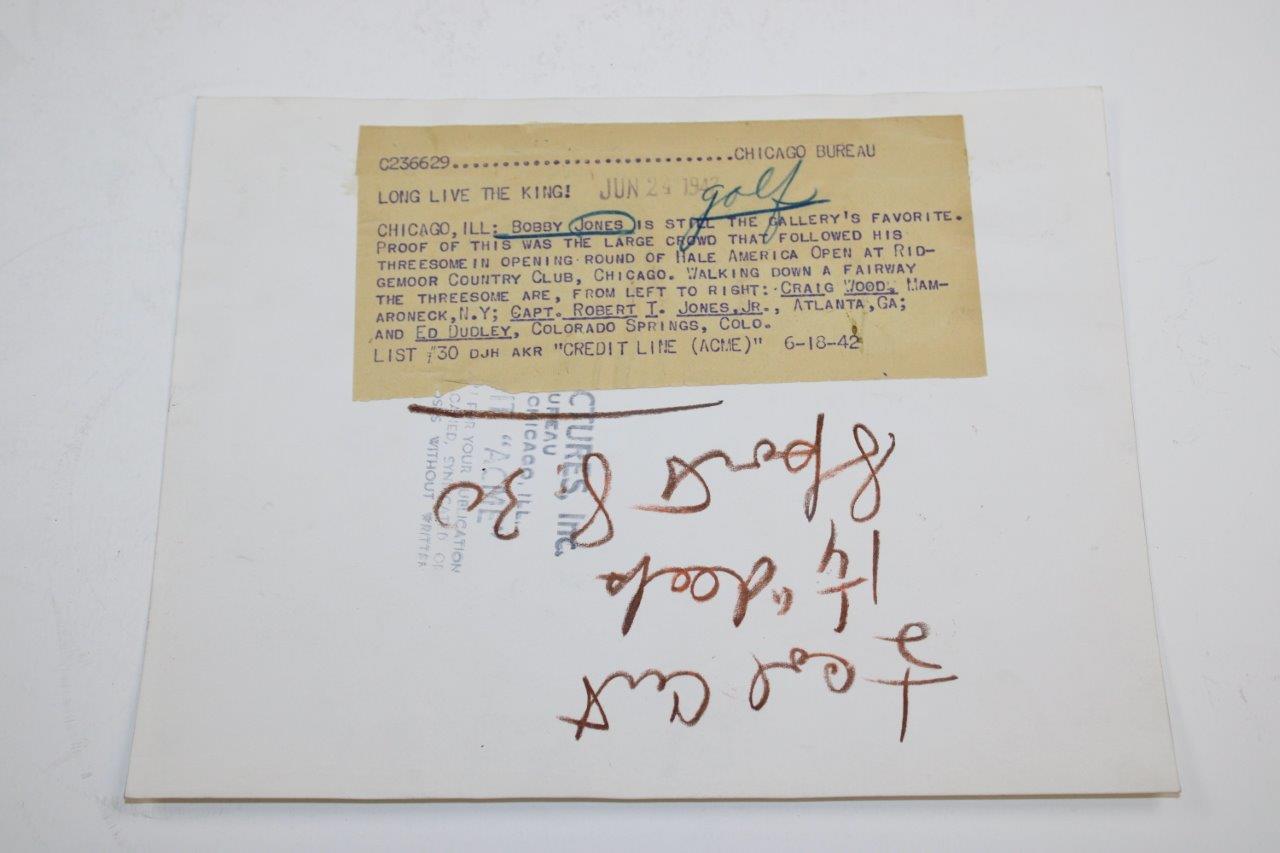 C236629............................CHICAGO BUREAU
LONG LIVE THE KING! JUN 24 1942
golf
CHICAGO, ILL: BOBBY JONES IS STILL THE GALLERY'S FAVORITE.
PROOF OF THIS WAS THE LARGE CROWD THAT FOLLOWED HIS
THREESOME IN OPENING ROUND OF HALE AMERICA OPEN AT RID-
GEMOOR COUNTRY CLUB, CHICAGO. WALKING DOWN A FAIRWAY
THE THREESOME ARE, FROM LEFT TO RIGHT: CRAIG WOOD, MAM-
ARONECK, N.Y; CAPT. ROBERT T. JONES, JR., ATLANTA, GA;
AND ED DUDLEY, COLORADO SPRINGS, COLO.
LIST #30 DJH AKR "CREDIT LINE (ACME)" 6-18-42
CTURES, INC.
UREAU
CHICAGO, ILL.
IT "ACME
FOR YOUR PUBLICATION
SYNDICATED OR
WITHOUT WRITTEN
col cut
deep
Sports
30